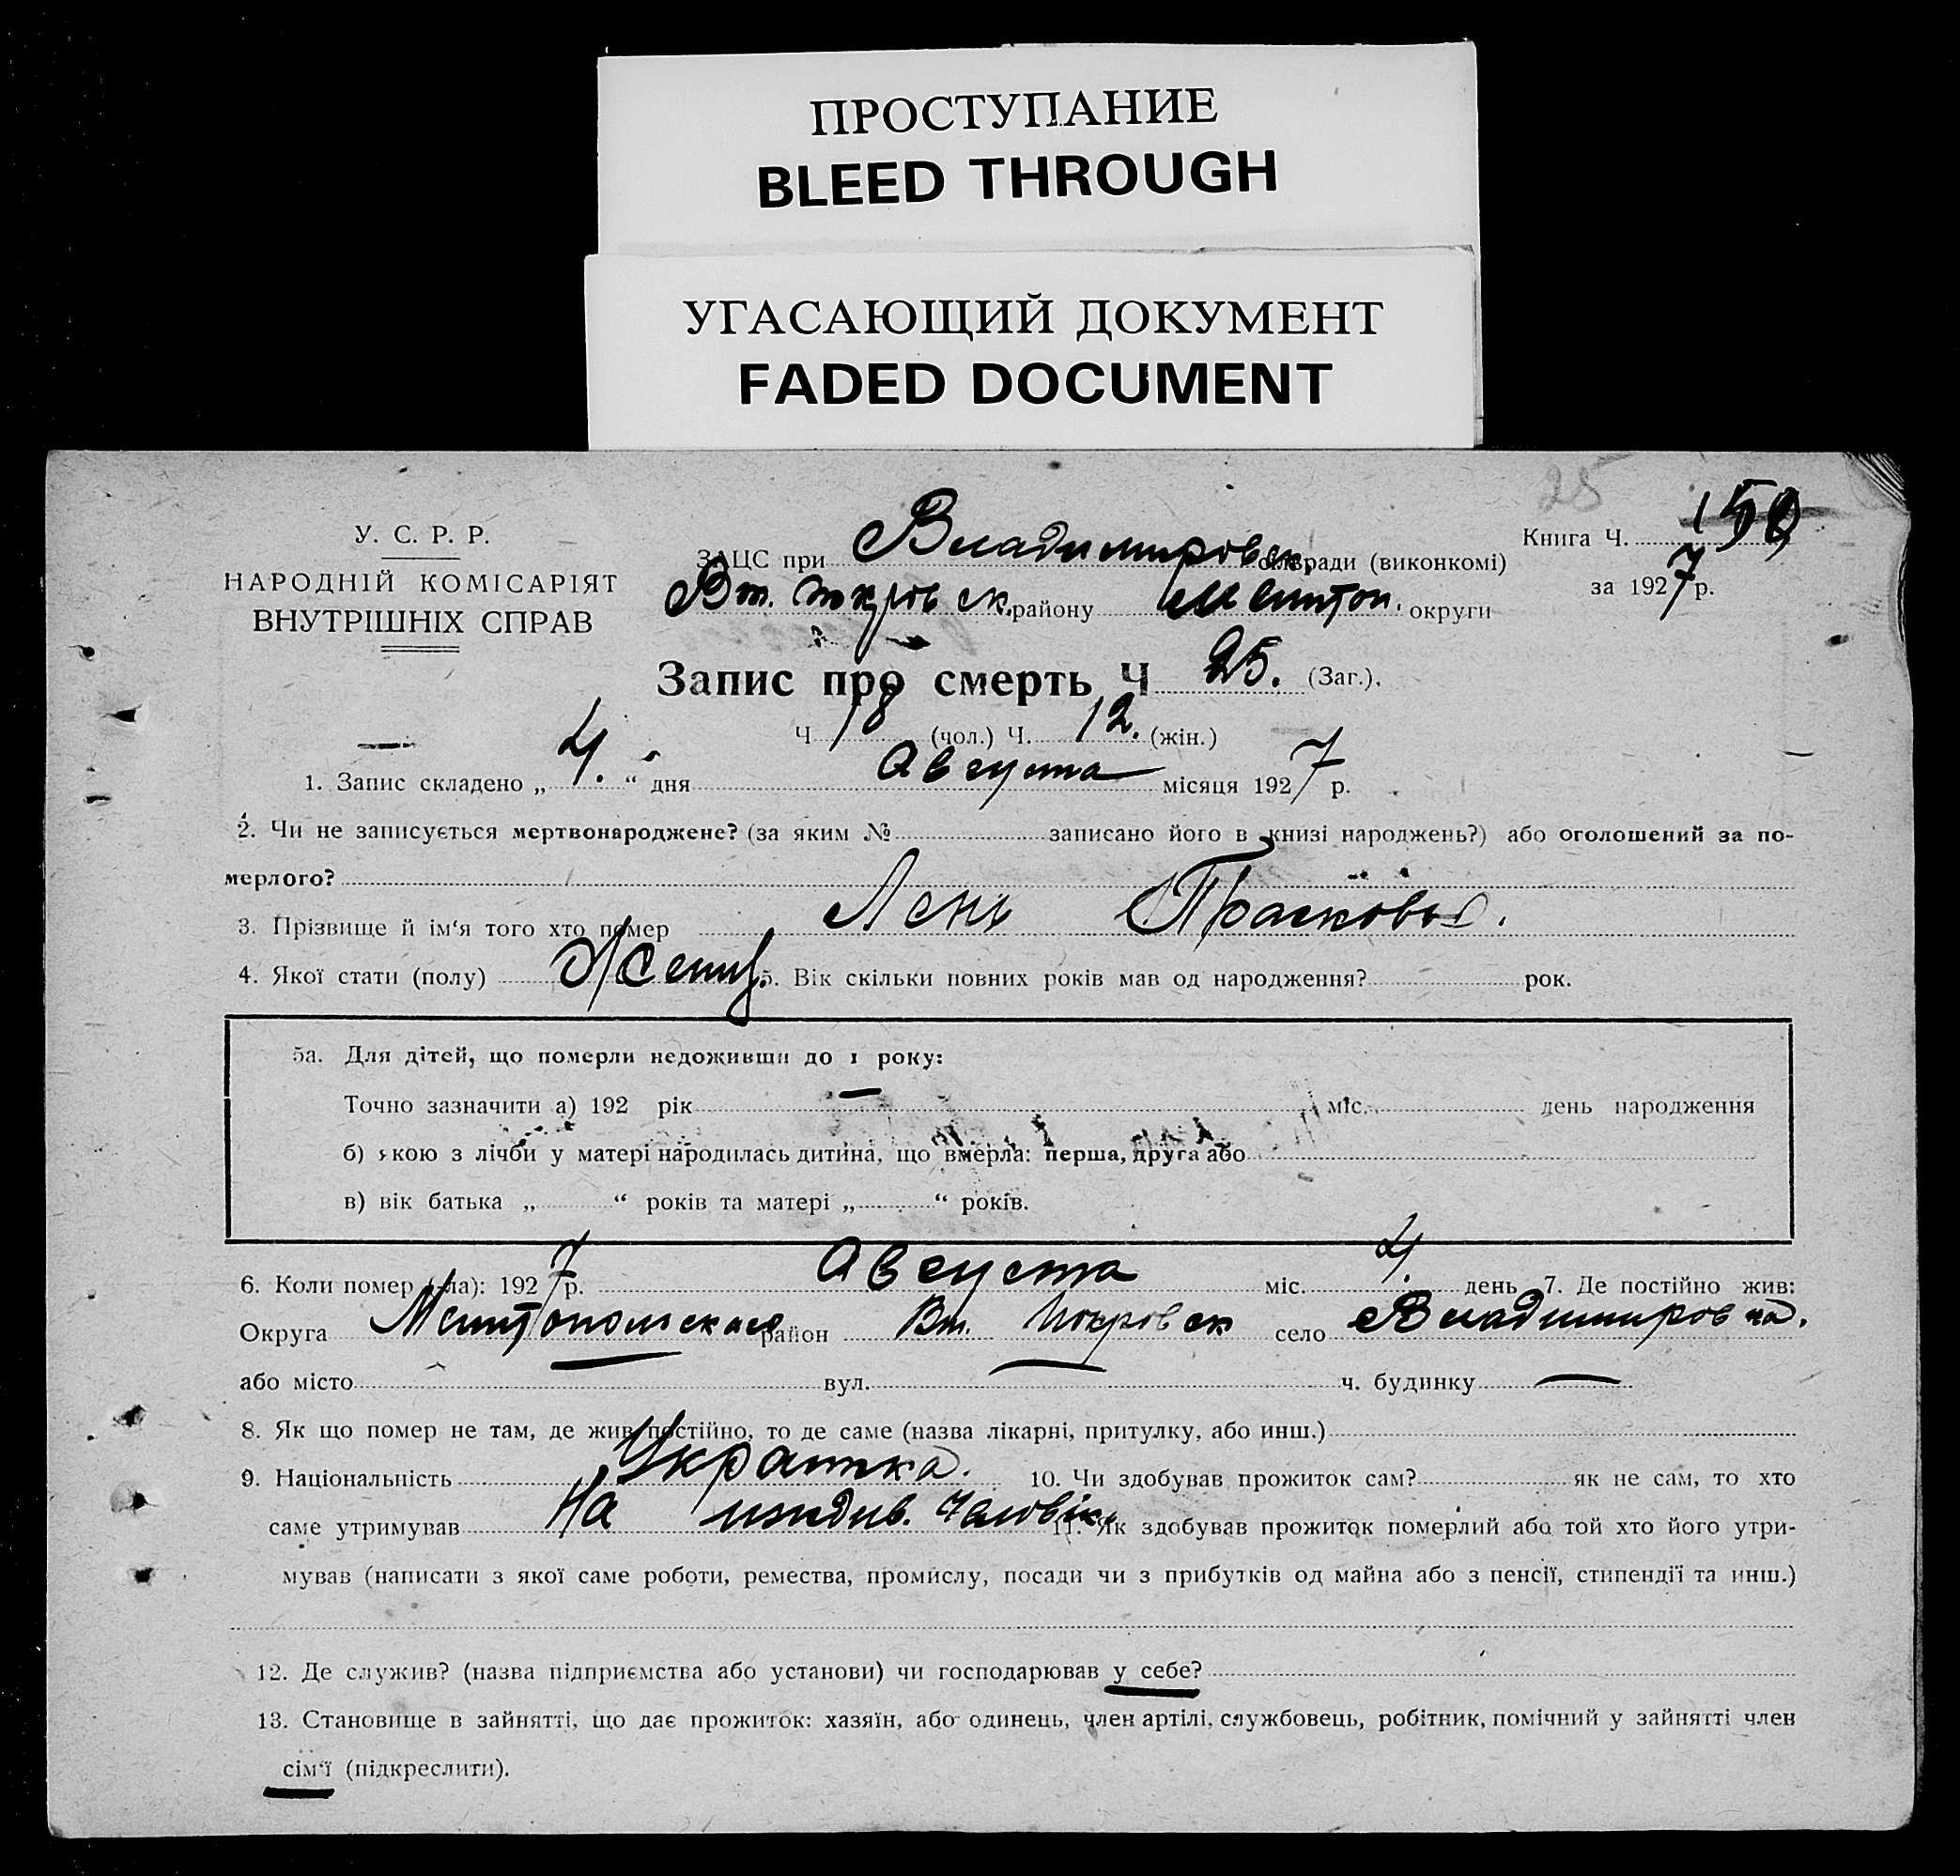 ПРОСТУПАНИЕ
BLEED THROUGH
УГАСАЮЩИЙ ДОКУМЕНТ
FADED DOCUMENT
25
У. С. Р. Р.
НАРОДНІЙ КОМІСАРІЯТ
ВНУТРІШНІХ СПРАВ
Книга Ч. 150
за 1927 р.
ЗАЦС при Владимировск. сільради (виконкомі)
Вт. Покровск. району Мелитоп. округи
Запис про смерть Ч 25. (Заг.).
Ч 18 (чол.) Ч. 12. (жін.)
1. Запис складено „ 4. “ дня Августа місяця 1927 р.
2. Чи не записується мертвонароджене? (за яким № записано його в книзі народжень?) або оголошений за по-
мерлого?
3. Прізвище й ім‘я того хто помер Лень Прасковья.
4. Якої стати (полу) Женщ. 5. Вік скільки повних років мав од народження? рок.
5а. Для дітей, що померли недоживши до 1 року:
Точно зазначити а) 192 рік — міс. день народження
б) якою з лічби у матері народилась дитина, що вмерла: перша, друга або
в) вік батька „ “ років та матері „ “ років.
6. Коли помер (-ла): 1927 р. Августа міс. 4. день 7. Де постійно жив:
Округа Мелитопольского район Вт. Покровск село Владимировка.
або місто вул. ч. будинку —
8. Як що помер не там, де жив постійно, то де саме (назва лікарні, притулку, або инш.)
9. Національність Украинка. 10. Чи здобував прожиток сам? як не сам, то хто
саме утримував На иждив. 11. Як здобував прожиток померлий або той хто його утри-
мував (написати з якої саме роботи, ремества, промислу, посади чи з прибутків од майна або з пенсії, стипендії та инш.)
12. Де служив? (назва підприємства або установи) чи господарював у себе?
13. Становище в зайнятті, що дає прожиток: хазяїн, або одинець, член артілі, службовець, робітник, помічний у зайнятті член
сім‘ї (підкреслити).